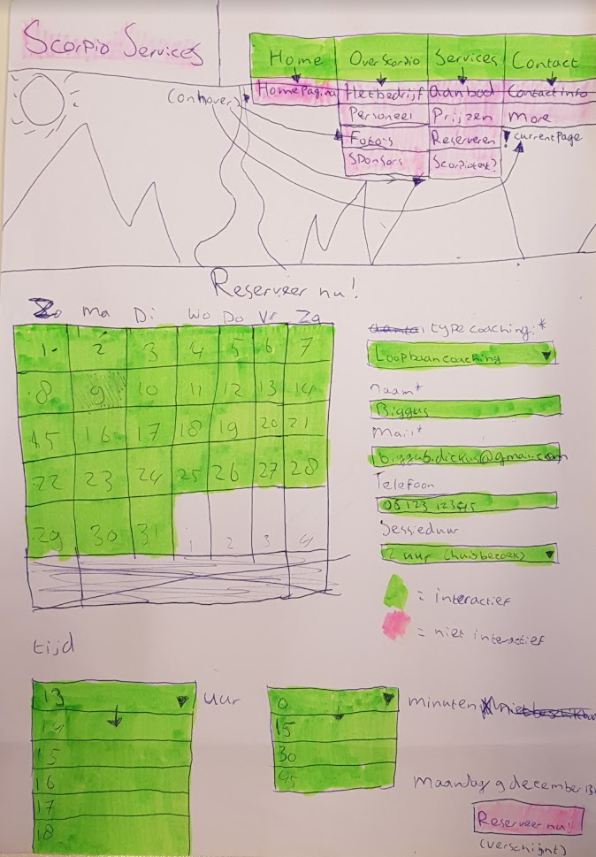 Scorpio Services
Home Over Scorpio Services Contact
(on hover) Home Pagina Het bedrijf Aanbod Contact info
Personeel Prijzen More
Foto's Reserveren ! currentPage
Sponsors
Reserveer nu!
Zo Ma Di Wo Do Vr Za
1 2 3 4 5 6 7
8 9 10 11 12 13 14
15 16 17 18 19 20 21
22 23 24 25 26 27 28
29 30 31 1 2 3 4
type coaching *
Loopbaancoaching
naam*
Biggus
Mail*
biggus.dickus@gmail.com
Telefoon
06 123 12345
Sessieduur
2 uur (huisbezoek)
= interactief
= niet interactief
tijd
13 uur 0 minuten
14 15
15 30
16 45
17
18
maandag 9 december 13:
Reserveer nu!!
(verschijnt)